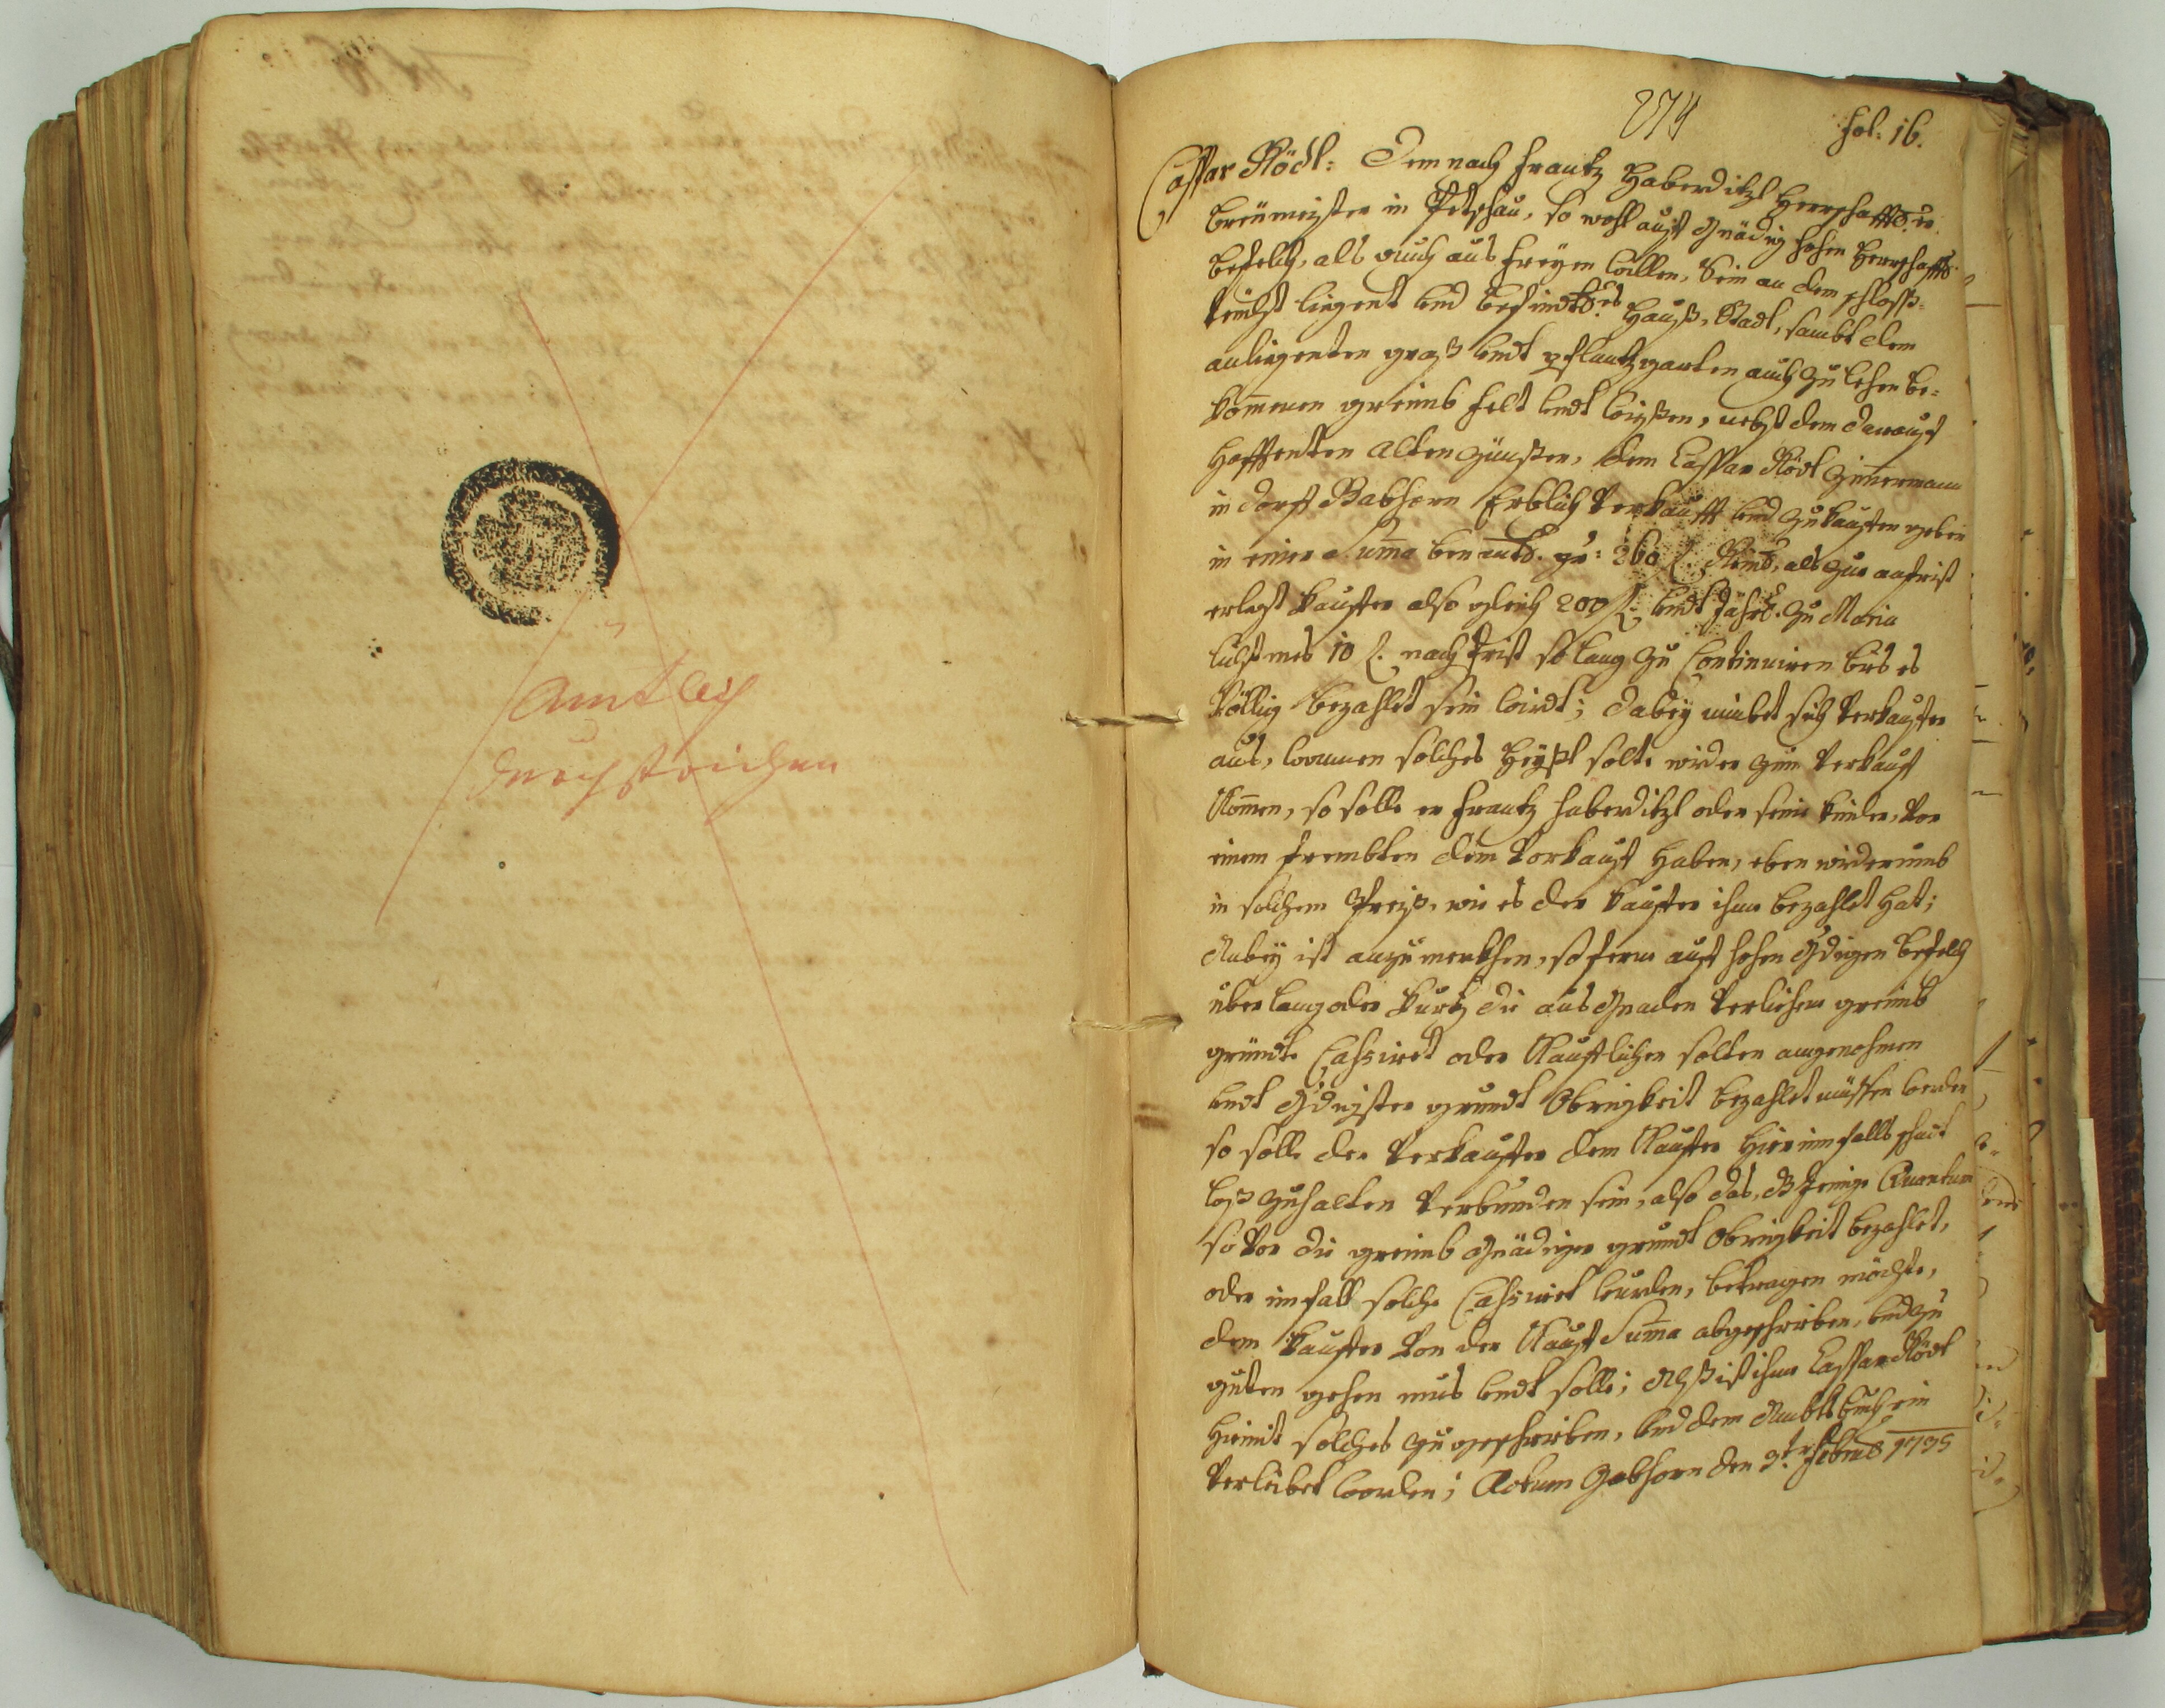 Amtlich
durchstrichen
274
fol: 16.
Caspar Rödl: Demnach Frantz Haberditzl Herrschafftl.er
Breümeister in Petschau, so wohl auf Gnädig hohen Herrschafftl.
befelch, als auch aus freyen willen, Sein an dem schloss-
teicht liegent und befindtl.es Hauß, Stadl, sambt dem
anligenten graß undt pflantzgarten auch zu lehen be-
kommen greimb felt undt wießen, nebst dem darauf
hafftenten alten Zünßen, dem Caspar Rödl Zimmermann
in dorff Gabhorn Erblich verkaufft und zukauffen geben
in einer Summa benantl. pr: 260 f. Reinl., als zur anfrist
erlegt kauffer also gleich 200 f. undt Jährl. zu Maria
lichtmes 10 f. nachfrist so lang zu Continuiren bis es
völlig bezahlet sein wirdt; dabey nimbet sich verkauffer
aus, wannen solches Heyßl solte wider zum verkauf
kommen, so solle er Frantz Haberditzl oder seine kinder, vor
einem frembten dem vorkauf haben, eben widerumb
in solchem Preiß, wie es der kauffer ihme bezahlet hat;
Anbey ist anzumerkhen, so ferne auf hohen Gdigen befelch
über lang oder kurtz die aus Gnaden verliehene greimb
gründte Cassiret oder Kaufflichen solten angenohmen
undt Gdigster grundt Obrigkeit bezahlet müssen werden
so solle der verkauffer dem Kauffer hierinfalls schadt
loß zuhalten verbunden sein, also das, dJenige Quantum
so vor die greimb Gnädiger grundt Obrigkeit bezahlet,
oder im fall solche Cassiret wurden, betragen möchte,
dem kauffer von der Kauf Summa abgeschrieben, und zu
guten gehen mus undt solle; Alß ist ihme Caspar Rödl
hiemit solches zugeschrieben, und dem Ambtsbuch ein
verleibet worden; Actum Gabhorn den 3.ten Febru: 1735